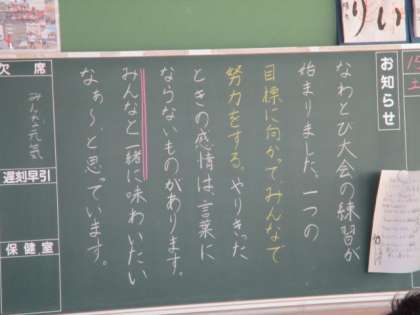 お知らせ
なわとび大会の練習が
始まりました。一つの
目標に向かってみんなで
努力をする。やりきった
ときの感情は、言葉に
ならないものがあります。
みんなと一緒に味わいたい
なぁ〜、と思っています。
欠席
みんな元気
遅刻早引
保健室